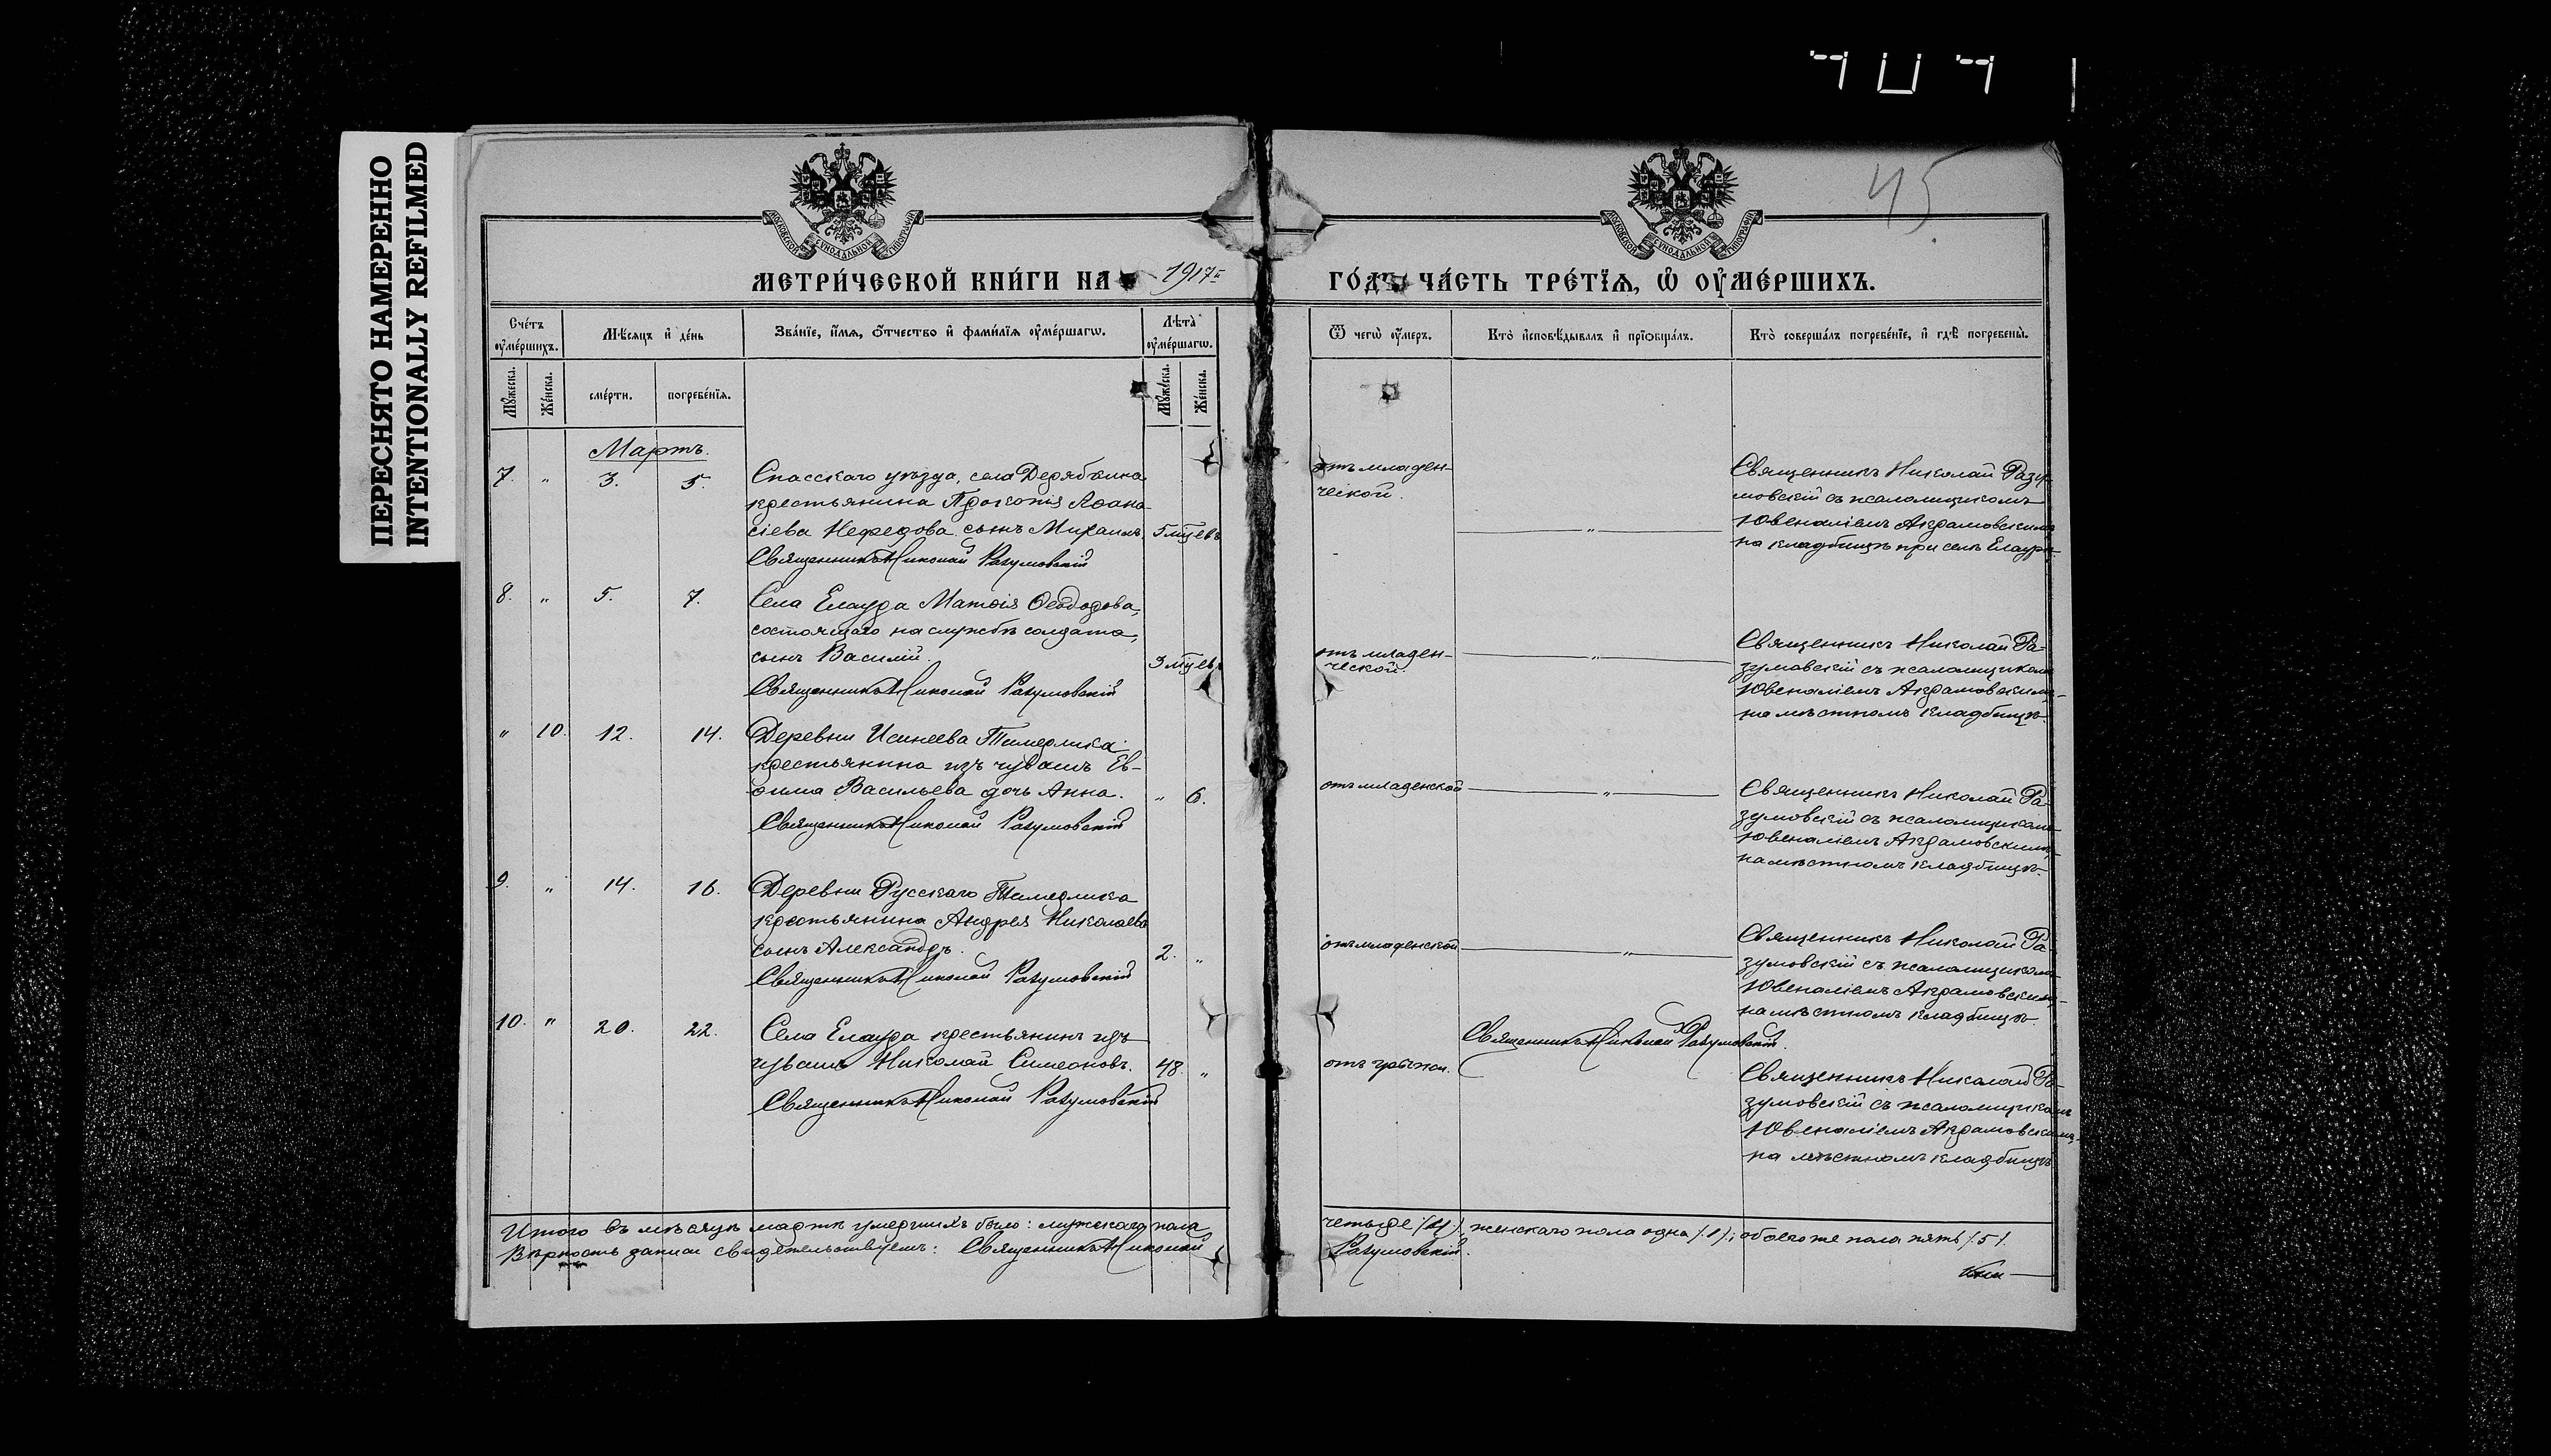 ПЕРЕСНЯТО НАМЕРЕННО
INTENTIONALLY REFILMED
45
МОСКОВСКОЙ СѴНОДАЛЬНОЙ ТИПОГРАФІИ
МОСКОВСКОЙ СѴНОДАЛЬНОЙ ТИПОГРАФІИ
МЕТРИ́ЧЕСКОЙ КНИ́ГИ НА 1917й
ГО́ДЪ ЧА́СТЬ ТРЕ́ТЇѦ, Ѽ ОУ҆МЕ́РШИХЪ.
Сче́тъ оу҆ме́ршихъ.
Мѣ́сяцъ и҆ де́нь
Зва́нїе, и҆́мѧ, ѻ҆́тчество и҆ фами́лїѧ оу҆ме́ршагѡ.
Лѣта̀ оу҆ме́ршагѡ.
Ѿ чегѡ̀ оу҆́меръ.
Кто̀ и҆сповѣ́дывалъ и҆ прїѡбща́лъ.
Кто̀ соверша́лъ погребе́нїе, и҆ гдѣ̀ погребены̀.
Мꙋ́жеска.
Же́нска.
сме́рти.
погребе́нїѧ.
Мꙋ́жеска.
Же́нска.
Мартъ.
7. " 3. 5.
Спасскаго уѣзда, села Дерябкина
крестьянина Прокопія Аѳана-
сіева Нефедова сынъ Михаилъ. 5 мцевъ
Священникъ Николай Разумовскій
отъ младен-
ческой.
"
Священникъ Николай Разу-
мовскій съ псаломщикомъ
Ювеналіемъ Аграмовскимъ
на кладбищѣ при селѣ Елаурѣ.
8. " 5. 7.
Села Елаура Матѳія Ѳеодорова,
состоящаго на службѣ солдата,
сынъ Василій. 3 мцев.
Священникъ Николай Разумовскій
отъ младен-
ческой.
"
Священникъ Николай Ра-
зумовскій съ псаломщикомъ
Ювеналіемъ Аграмовскимъ,
на мѣстномъ кладбищѣ.
" 10. 12. 14.
Деревни Исинеева Тимерлика
крестьянина изъ чувашъ Ев-
ѳима Васильева дочь Анна. " 6.
Священникъ Николай Разумовскій
отъ младенской
"
Священникъ Николай Ра-
зумовскій съ псаломщикомъ
Ювеналіемъ Аграмовскимъ,
на мѣстномъ кладбищѣ.
9. " 14. 16.
Деревни Русскаго Тимерлика
крестьянина Андрея Николаева
сынъ Александръ. 2. "
Священникъ Николай Разумовскій
отъ младенской
"
Священникъ Николай Ра-
зумовскій съ псаломщикомъ
Ювеналіемъ Аграмовскимъ,
на мѣстномъ кладбищѣ.
10. " 20. 22.
Села Елаура крестьянинъ изъ
чувашъ Николай Симеоновъ. 48. "
Священникъ Николай Разумовскій
Священникъ Николай Разумовскій.
Священникъ Николай Ра-
зумовскій съ псаломщикомъ
Ювеналіемъ Аграмовскимъ,
на мѣстномъ кладбищѣ
Итого въ мѣсяцѣ мартѣ умершихъ было: мужескаго пола четыре /4/, женскаго пола одна /1/; обоего же пола пять /5/.
Вѣрность записи свидѣтельствуемъ: Священникъ Николай Разумовскій.